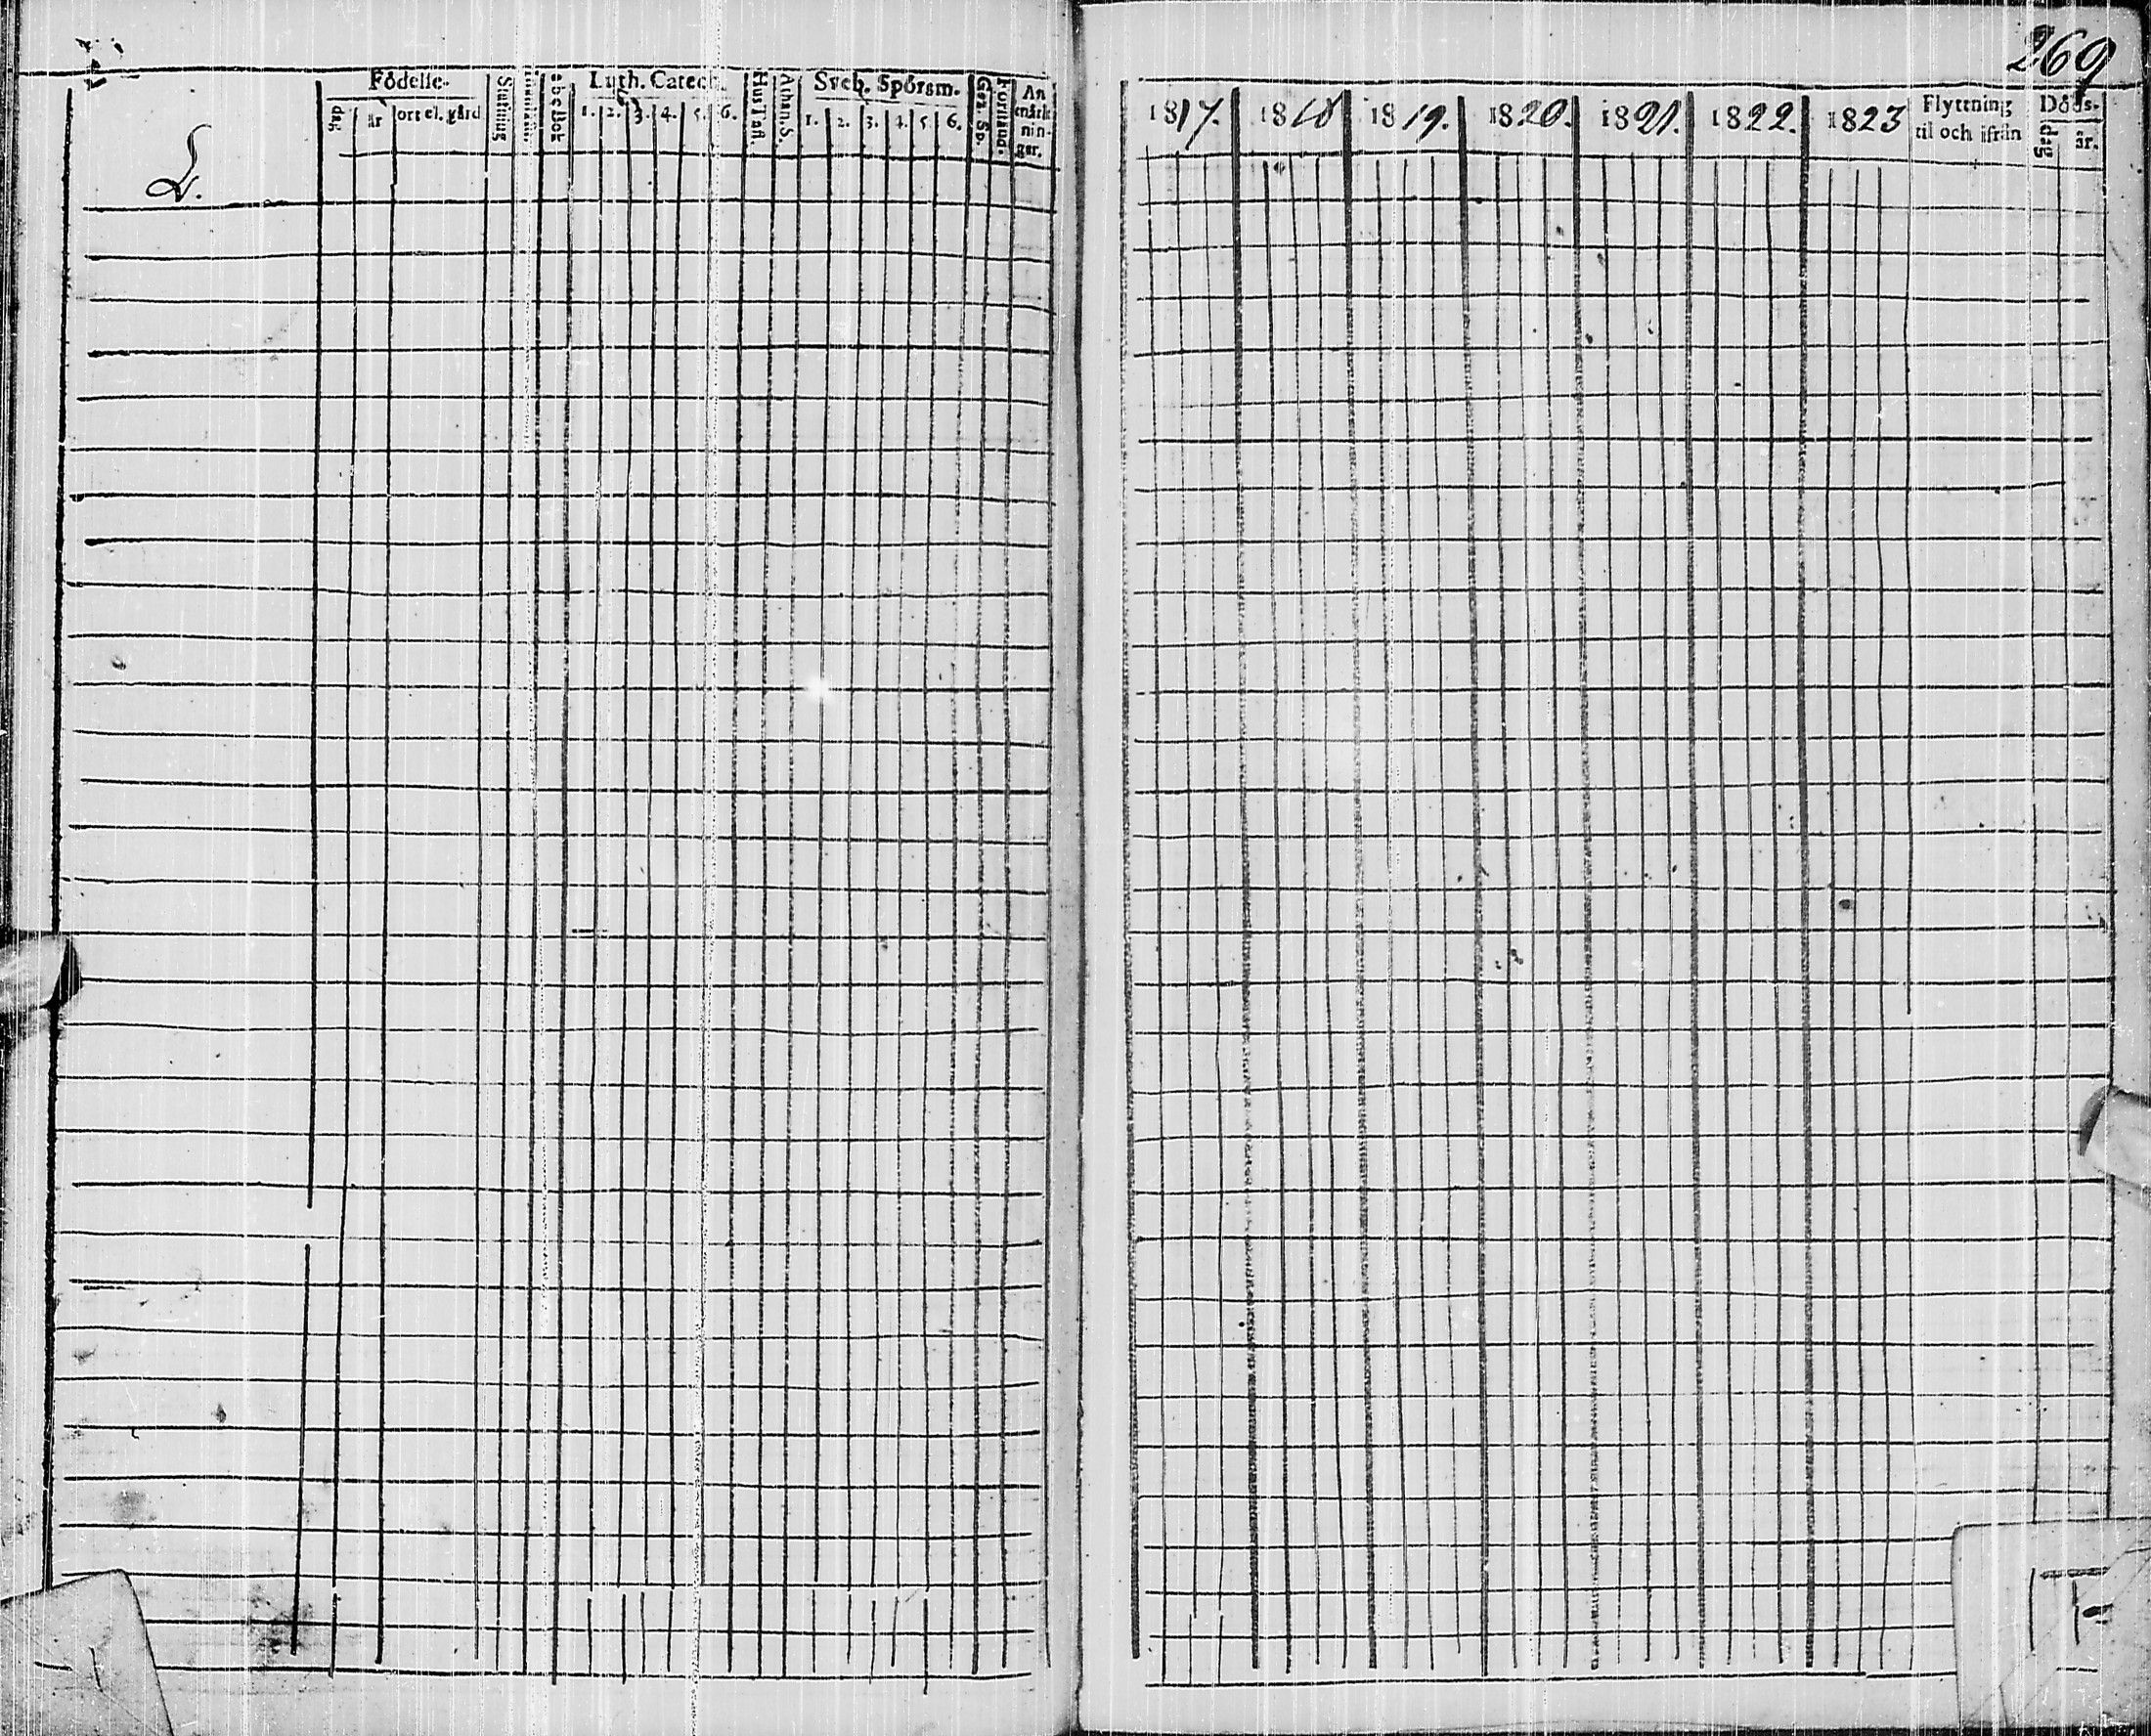 269
Födelse-
dag
år
ort el. gård
abc Bok
Luth. Catech.
1. 2. 3. 4. 5. 6.
Hus Tafl.
Athan. S.
Sveb. Spörsm.
1. 2. 3. 4. 5. 6.
Gez. Sp.
Förstånd.
An
märk
nin-
gar.
L.
1817. 1818 1819. 1820. 1821. 1822. 1823
Flyttning
til och ifrån
Döds-
dag
år.